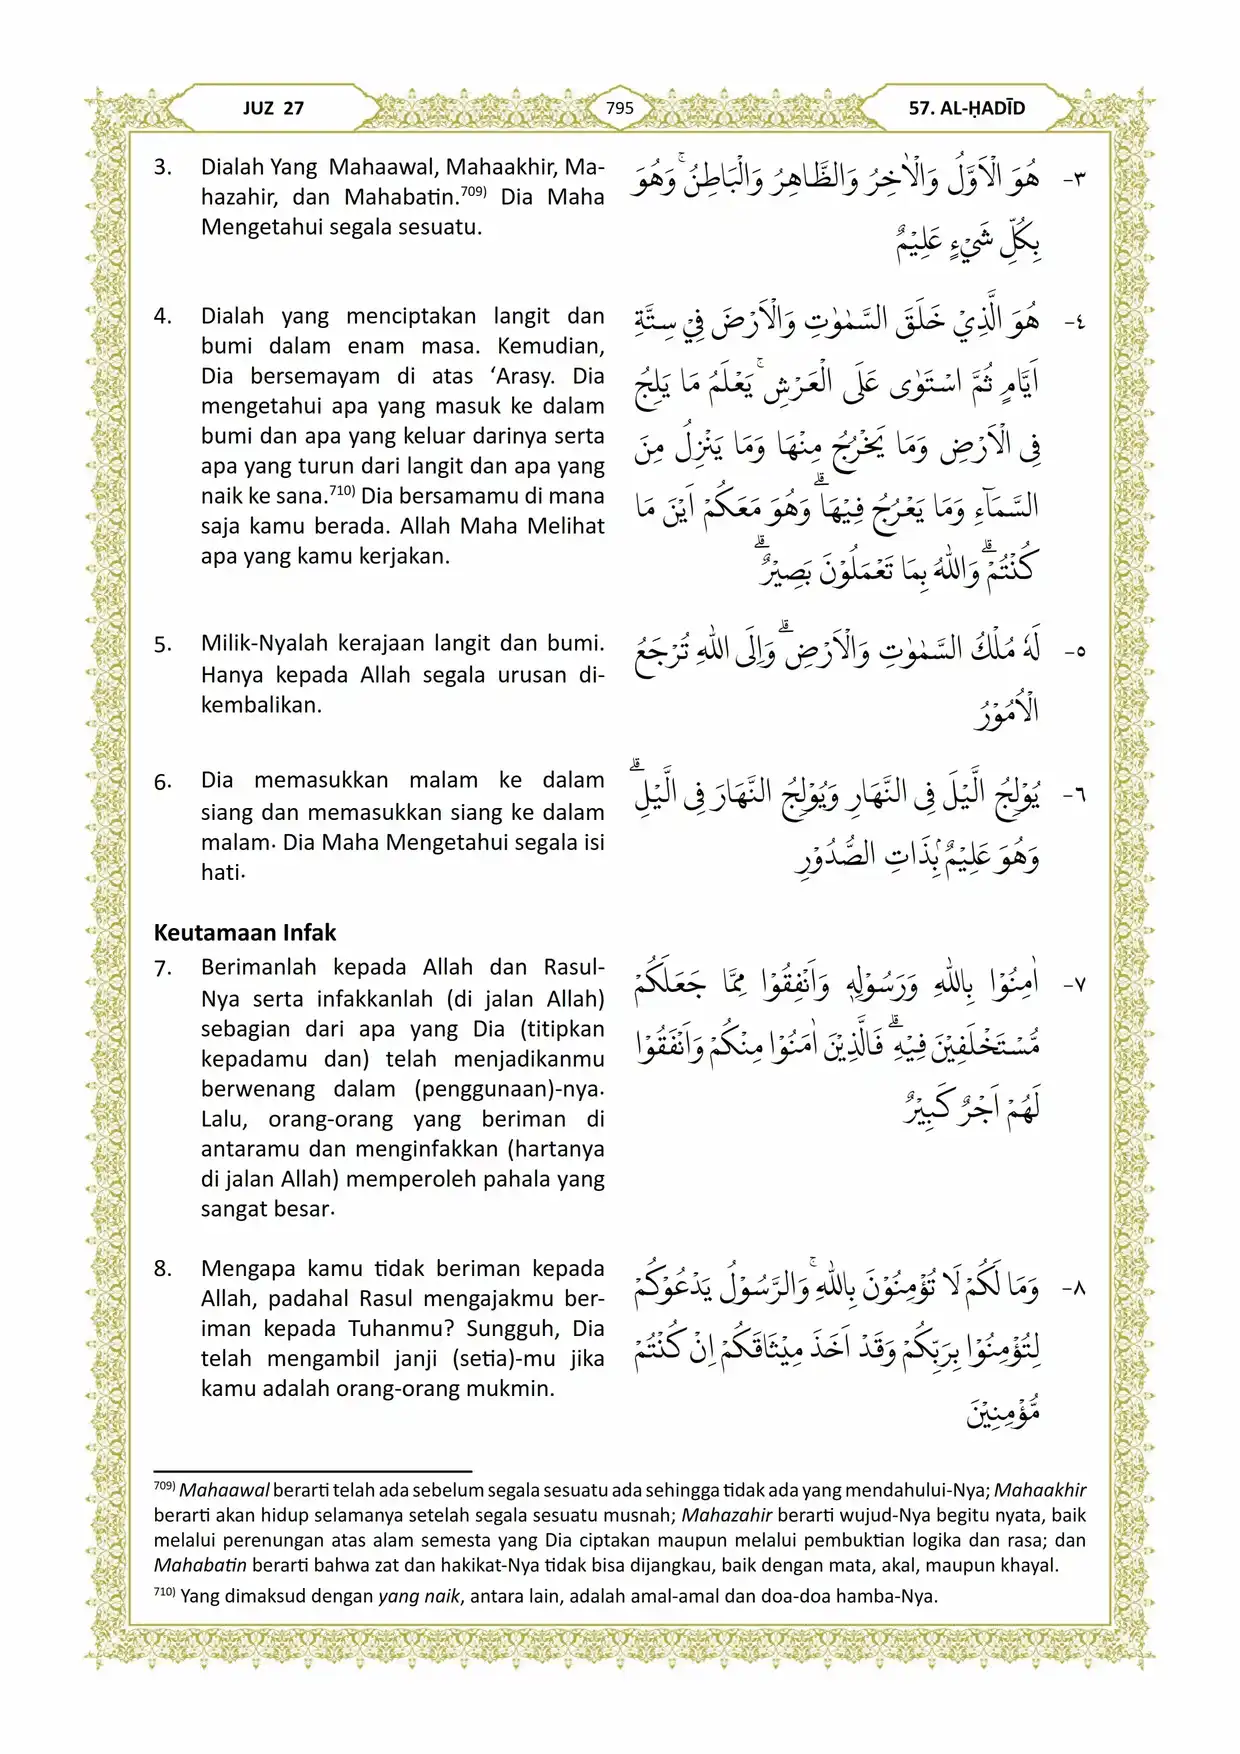 JUZ 27
795
57. AL-ḤADĪD
3. Dialah Yang Mahaawal, Mahaakhir, Ma-
hazahir, dan Mahabatin.709) Dia Maha
Mengetahui segala sesuatu.
٣- هُوَ الْاَوَّلُ وَالْاٰخِرُ وَالظَّاهِرُ وَالْبَاطِنُۚ وَهُوَ
بِكُلِّ شَيْءٍ عَلِيْمٌ
4. Dialah yang menciptakan langit dan
bumi dalam enam masa. Kemudian,
Dia bersemayam di atas ‘Arasy. Dia
mengetahui apa yang masuk ke dalam
bumi dan apa yang keluar darinya serta
apa yang turun dari langit dan apa yang
naik ke sana.710) Dia bersamamu di mana
saja kamu berada. Allah Maha Melihat
apa yang kamu kerjakan.
٤- هُوَ الَّذِيْ خَلَقَ السَّمٰوٰتِ وَالْاَرْضَ فِيْ سِتَّةِ
اَيَّامٍ ثُمَّ اسْتَوٰى عَلَى الْعَرْشِۚ يَعْلَمُ مَا يَلِجُ
فِى الْاَرْضِ وَمَا يَخْرُجُ مِنْهَا وَمَا يَنْزِلُ مِنَ
السَّمَاۤءِ وَمَا يَعْرُجُ فِيْهَاۗ وَهُوَ مَعَكُمْ اَيْنَ مَا
كُنْتُمْۗ وَاللّٰهُ بِمَا تَعْمَلُوْنَ بَصِيْرٌۗ
5. Milik-Nyalah kerajaan langit dan bumi.
Hanya kepada Allah segala urusan di-
kembalikan.
٥- لَهٗ مُلْكُ السَّمٰوٰتِ وَالْاَرْضِۗ وَاِلَى اللّٰهِ تُرْجَعُ
الْاُمُوْرُ
6. Dia memasukkan malam ke dalam
siang dan memasukkan siang ke dalam
malam. Dia Maha Mengetahui segala isi
hati.
٦- يُوْلِجُ الَّيْلَ فِى النَّهَارِ وَيُوْلِجُ النَّهَارَ فِى الَّيْلِۗ
وَهُوَ عَلِيْمٌۢ بِذَاتِ الصُّدُوْرِ
Keutamaan Infak
7. Berimanlah kepada Allah dan Rasul-
Nya serta infakkanlah (di jalan Allah)
sebagian dari apa yang Dia (titipkan
kepadamu dan) telah menjadikanmu
berwenang dalam (penggunaan)-nya.
Lalu, orang-orang yang beriman di
antaramu dan menginfakkan (hartanya
di jalan Allah) memperoleh pahala yang
sangat besar.
٧- اٰمِنُوْا بِاللّٰهِ وَرَسُوْلِهٖ وَاَنْفِقُوْا مِمَّا جَعَلَكُمْ
مُّسْتَخْلَفِيْنَ فِيْهِۗ فَالَّذِيْنَ اٰمَنُوْا مِنْكُمْ وَاَنْفَقُوْا
لَهُمْ اَجْرٌ كَبِيْرٌ
8. Mengapa kamu tidak beriman kepada
Allah, padahal Rasul mengajakmu ber-
iman kepada Tuhanmu? Sungguh, Dia
telah mengambil janji (setia)-mu jika
kamu adalah orang-orang mukmin.
٨- وَمَا لَكُمْ لَا تُؤْمِنُوْنَ بِاللّٰهِۚ وَالرَّسُوْلُ يَدْعُوْكُمْ
لِتُؤْمِنُوْا بِرَبِّكُمْ وَقَدْ اَخَذَ مِيْثَاقَكُمْ اِنْ كُنْتُمْ
مُّؤْمِنِيْنَ
709) Mahaawal berarti telah ada sebelum segala sesuatu ada sehingga tidak ada yang mendahului-Nya; Mahaakhir
berarti akan hidup selamanya setelah segala sesuatu musnah; Mahazahir berarti wujud-Nya begitu nyata, baik
melalui perenungan atas alam semesta yang Dia ciptakan maupun melalui pembuktian logika dan rasa; dan
Mahabatin berarti bahwa zat dan hakikat-Nya tidak bisa dijangkau, baik dengan mata, akal, maupun khayal.
710) Yang dimaksud dengan yang naik, antara lain, adalah amal-amal dan doa-doa hamba-Nya.